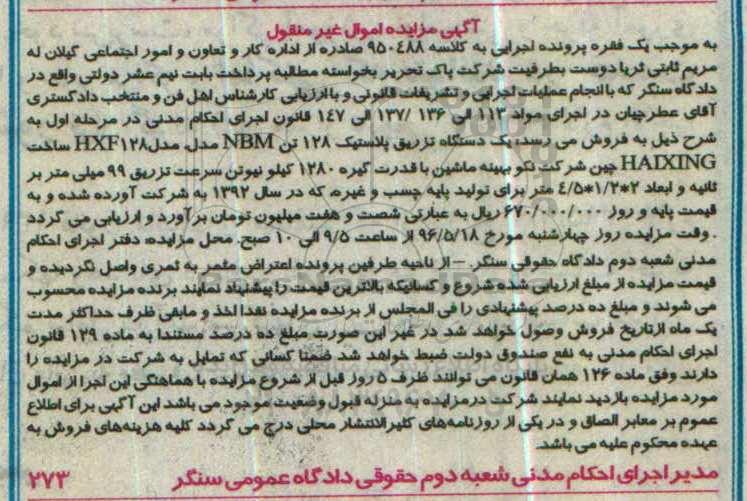 آگهی مزایده اموال غیر منقول
به موجب یک فقره پرونده اجرایی به کلاسه ۹۵۰۴۸۸ صادره از اداره کار و تعاون و امور اجتماعی گیلان له
مریم ثابتی ثریا دوست بطرفیت شرکت پاک تحریر بخواسته مطالبه پرداخت بابت نیم عشر دولتی واقع در
دادگاه سنگر که با انجام عملیات اجرایی و تشریفات قانونی و با ارزیابی کارشناس اهل فن و منتخب دادگستری
آقای عطرچیان در اجرای مواد ۱۱۳ الی ۱۳۶ /۱۳۷ الی ۱۴۷ قانون اجرای احکام مدنی در مرحله اول به
شرح ذیل به فروش می رسد: یک دستگاه تزریق پلاستیک ۱۲۸ تن NBM مدل، مدل HXF۱۲۸ ساخت
HAIXING چین شرکت نکو بهینه ماشین با قدرت گیره ۱۲۸۰ کیلو نیوتن سرعت تزریق ۹۹ میلی متر بر
ثانیه و ابعاد ۲*۱/۲*۴/۵ متر برای تولید پایه چسب و غیره که در سال ۱۳۹۲ به شرکت آورده شده و به
قیمت پایه و روز ۶۷۰/۰۰۰/۰۰۰ ریال به عبارتی شصت و هفت میلیون تومان برآورد و ارزیابی می گردد
. وقت مزایده روز چهارشنبه مورخ ۹۶/۵/۱۸ از ساعت ۹/۵ الی ۱۰ صبح. محل مزایده: دفتر اجرای احکام
مدنی شعبه دوم دادگاه حقوقی سنگر. – از ناحیه طرفین پرونده اعتراض مثمر به ثمری واصل نگردیده و
قیمت مزایده از مبلغ ارزیابی شده شروع و کسانیکه بالاترین قیمت را پیشنهاد نمایند برنده مزایده محسوب
می شوند و مبلغ ده درصد پیشنهادی را فی المجلس از برنده مزایده نقدا اخذ و مابقی ظرف حداکثر مدت
یک ماه ازتاریخ فروش وصول خواهد شد در غیر این صورت مبلغ ده درصد مستندا به ماده ۱۲۹ قانون
اجرای احکام مدنی به نفع صندوق دولت ضبط خواهد شد ضمنا کسانی که تمایل به شرکت در مزایده را
دارند وفق ماده ۱۲۶ همان قانون می توانند ظرف ۵ روز قبل از شروع مزایده با هماهنگی این اجرا از اموال
مورد مزایده بازدید نمایند شرکت درمزایده به منزله قبول وضعیت موجود می باشد این آگهی برای اطلاع
عموم بر معابر الصاق و در یکی از روزنامه‌های کثیرالانتشار محلی درج می گردد کلیه هزینه‌های فروش به
عهده محکوم علیه می باشد.
مدیر اجرای احکام مدنی شعبه دوم حقوقی دادگاه عمومی سنگر ۲۷۳